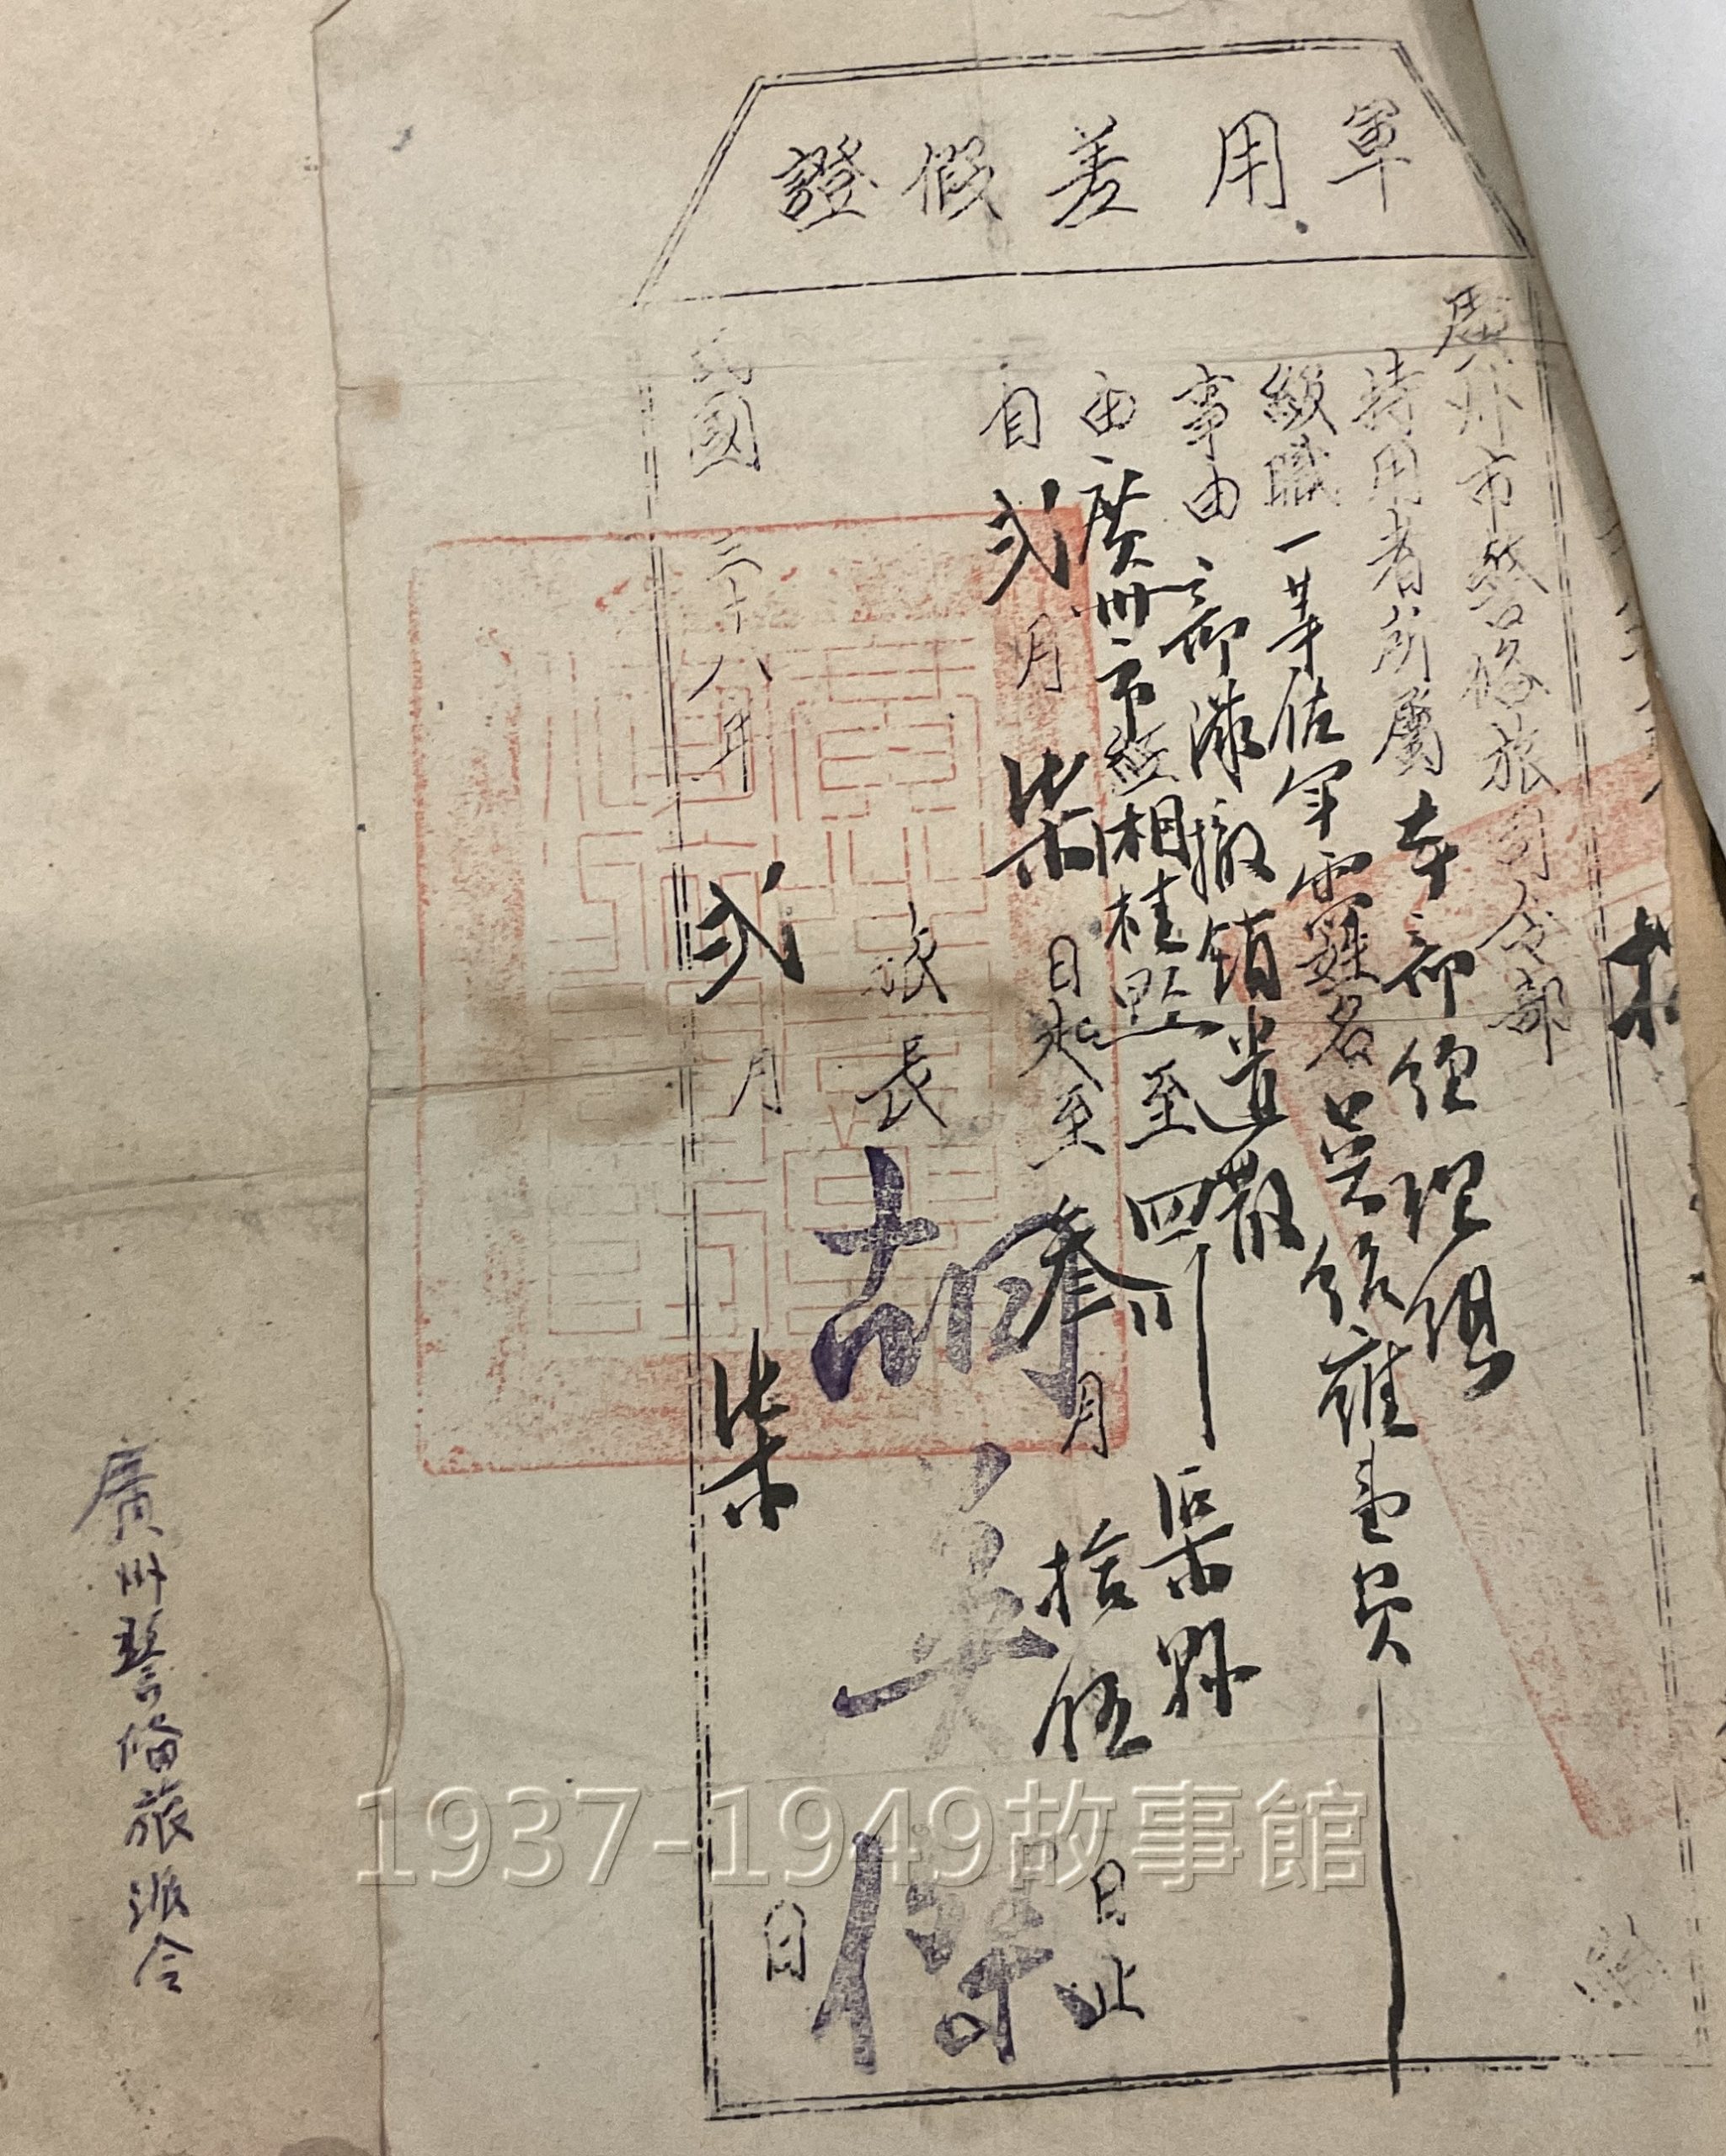 軍用差假證
廣州市警備旅司令部
持用者所屬本部經理組
級職一等佐軍需姓名吳紹雍壹員
事由部隊撤銷遣散
由廣州市經湘桂黔至四川渠縣
自弍月柒日起至叁月拾伍日止
旅長胡英傑
民國三十八年弍月柒日
廣州警備旅派令
1937-1949故事館